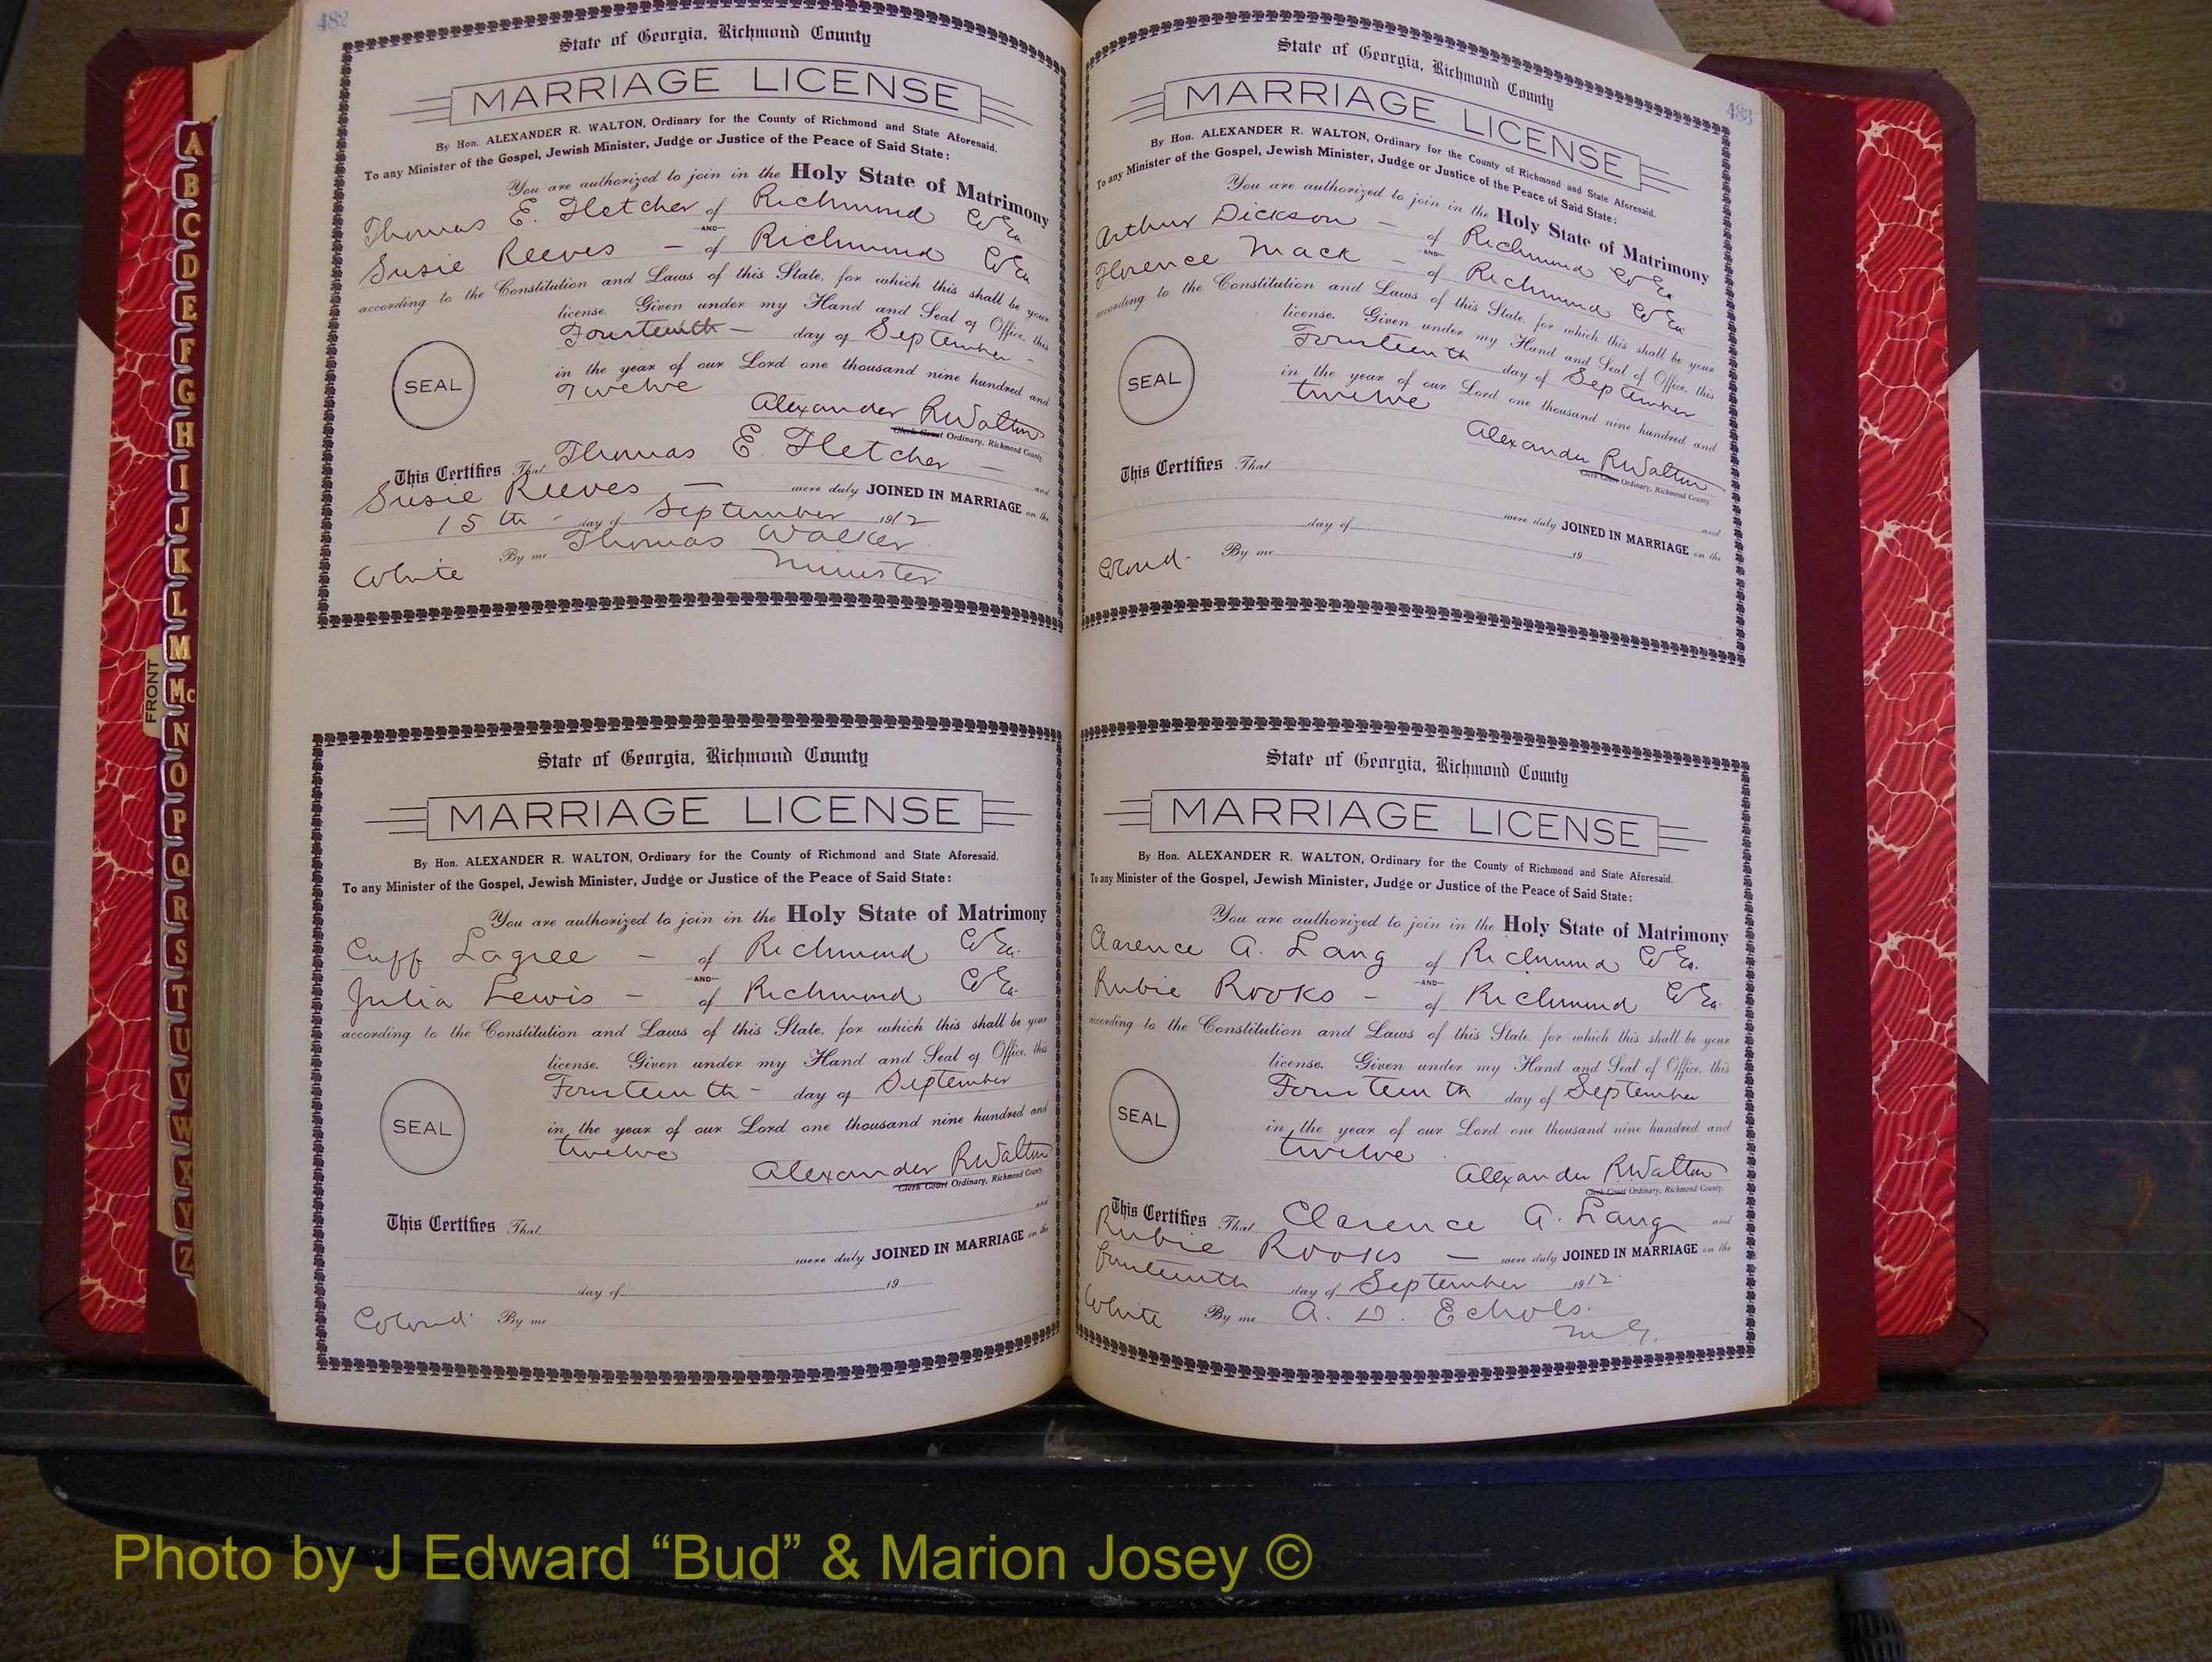 482
State of Georgia, Richmond County
MARRIAGE LICENSE
By Hon. ALEXANDER R. WALTON, Ordinary for the County of Richmond and State Aforesaid.
To any Minister of the Gospel, Jewish Minister, Judge or Justice of the Peace of Said State:
You are authorized to join in the Holy State of Matrimony
Thomas E. Fletcher of Richmond Co Ga
AND
Susie Reeves – of Richmond Co Ga
according to the Constitution and Laws of this State, for which this shall be your
license. Given under my Hand and Seal of Office, this
Fourteenth – day of September –
in the year of our Lord one thousand nine hundred and
Twelve
SEAL
Alexander R Walton
Clerk Court Ordinary, Richmond County
This Certifies That Thomas E. Fletcher – and
Susie Reeves – were duly JOINED IN MARRIAGE on the
15th – day of September 1912
White By me Thomas Walker
Minister
State of Georgia, Richmond County
MARRIAGE LICENSE
By Hon. ALEXANDER R. WALTON, Ordinary for the County of Richmond and State Aforesaid.
To any Minister of the Gospel, Jewish Minister, Judge or Justice of the Peace of Said State:
You are authorized to join in the Holy State of Matrimony
Cuff Lagree – of Richmond Co Ga.
AND
Julia Lewis – of Richmond Co Ga.
according to the Constitution and Laws of this State, for which this shall be your
license. Given under my Hand and Seal of Office, this
Fourteenth – day of September
in the year of our Lord one thousand nine hundred and
twelve
SEAL
Alexander R Walton
Clerk Court Ordinary, Richmond County.
and
This Certifies That
were duly JOINED IN MARRIAGE on the
day of 19
Colored By me
483
State of Georgia, Richmond County
MARRIAGE LICENSE
By Hon. ALEXANDER R. WALTON, Ordinary for the County of Richmond and State Aforesaid.
To any Minister of the Gospel, Jewish Minister, Judge or Justice of the Peace of Said State:
You are authorized to join in the Holy State of Matrimony
Arthur Dickson – of Richmond Co Ga
AND
Florence Mack – of Richmond Co Ga
according to the Constitution and Laws of this State, for which this shall be your
license. Given under my Hand and Seal of Office, this
Fourteenth day of September
in the year of our Lord one thousand nine hundred and
twelve
SEAL
Alexander R Walton
Clerk Court Ordinary, Richmond County.
This Certifies That
and
were duly JOINED IN MARRIAGE on the
day of 19
Colored – By me
State of Georgia, Richmond County
MARRIAGE LICENSE
By Hon. ALEXANDER R. WALTON, Ordinary for the County of Richmond and State Aforesaid.
To any Minister of the Gospel, Jewish Minister, Judge or Justice of the Peace of Said State:
You are authorized to join in the Holy State of Matrimony
Clarence A. Lang of Richmond Co Ga.
AND
Rubie Rooks – of Richmond Co Ga
according to the Constitution and Laws of this State, for which this shall be your
license. Given under my Hand and Seal of Office, this
Fourteenth day of September
in the year of our Lord one thousand nine hundred and
twelve
SEAL
Alexander R Walton
Clerk Court Ordinary, Richmond County.
This Certifies That Clarence A. Lang and
Rubie Rooks – were duly JOINED IN MARRIAGE on the
fourteenth day of September 1912
White By me A. D. Echols.
M G.
A
B
C
D
E
F
G
H
I
J
K
L
M
Mc
N
O
P
Q
R
S
T
U
V
W
X
Y
Z
FRONT
Photo by J Edward “Bud” & Marion Josey ©